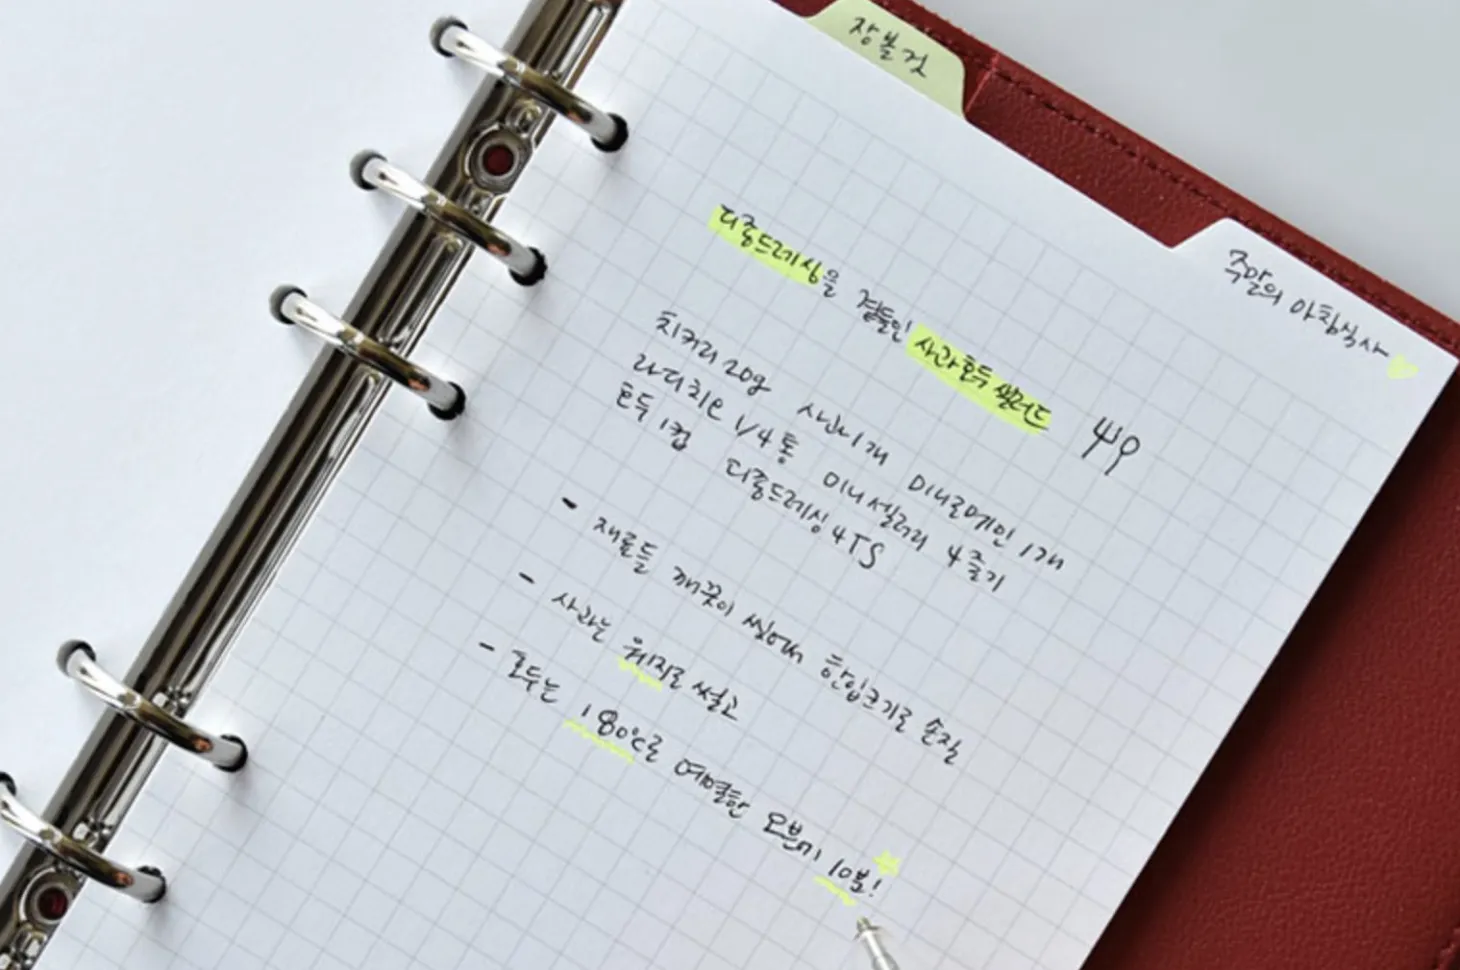 장볼것
주말의 아침식사
디종드레싱을 곁들인 사과호두샐러드
치커리 20g 사과 1개 미니로메인 1개
라디치오 1/4통 미니셀러리 4줄기
호두 1컵 디종드레싱 4TS
- 재료들 깨끗이 씻어서 한입크기로 손질
- 사과는 웨지로 썰고
- 호두는 180℃로 예열한 오븐에 10분!